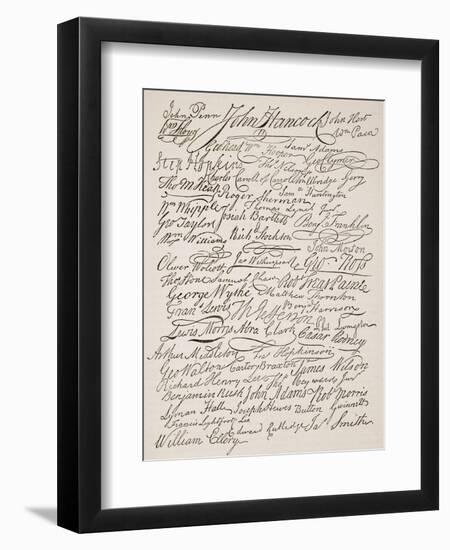 John Penn John Hancock John Hart
Wm Paca
Geo Read Wm Hooper Saml Adams
Step Hopkins Thos Nelson Geo Clymer
Charles Carroll of Carrollton Elbridge Gerry
Tho M:Kean Roger Sherman Saml Huntington
Wm Whipple Thomas Lynch Benj Franklin
Geo Taylor Josiah Bartlett
Wm Williams Rich Stockton John Morton
Oliver Wolcott Jas Wilkinson Geo Ross
Tho Stone Samuel Chase Rob Treat Paine
George Wythe Matthew Thornton
Fran Lewis Th Jefferson Benj Harrison
Lewis Morris Abra Clark Caesar Rodney
Arthur Middleton Fra Hopkinson
Geo Walton Carter Braxton James Wilson
Richard Henry Lee Tho Heyward Jun
Benjamin Rush John Adams Rob Morris
Lyman Hall Joseph Hewes Button Gwinnett
Francis Lightfoot Lee
Edward Rutledge Jas Smith
William Ellery